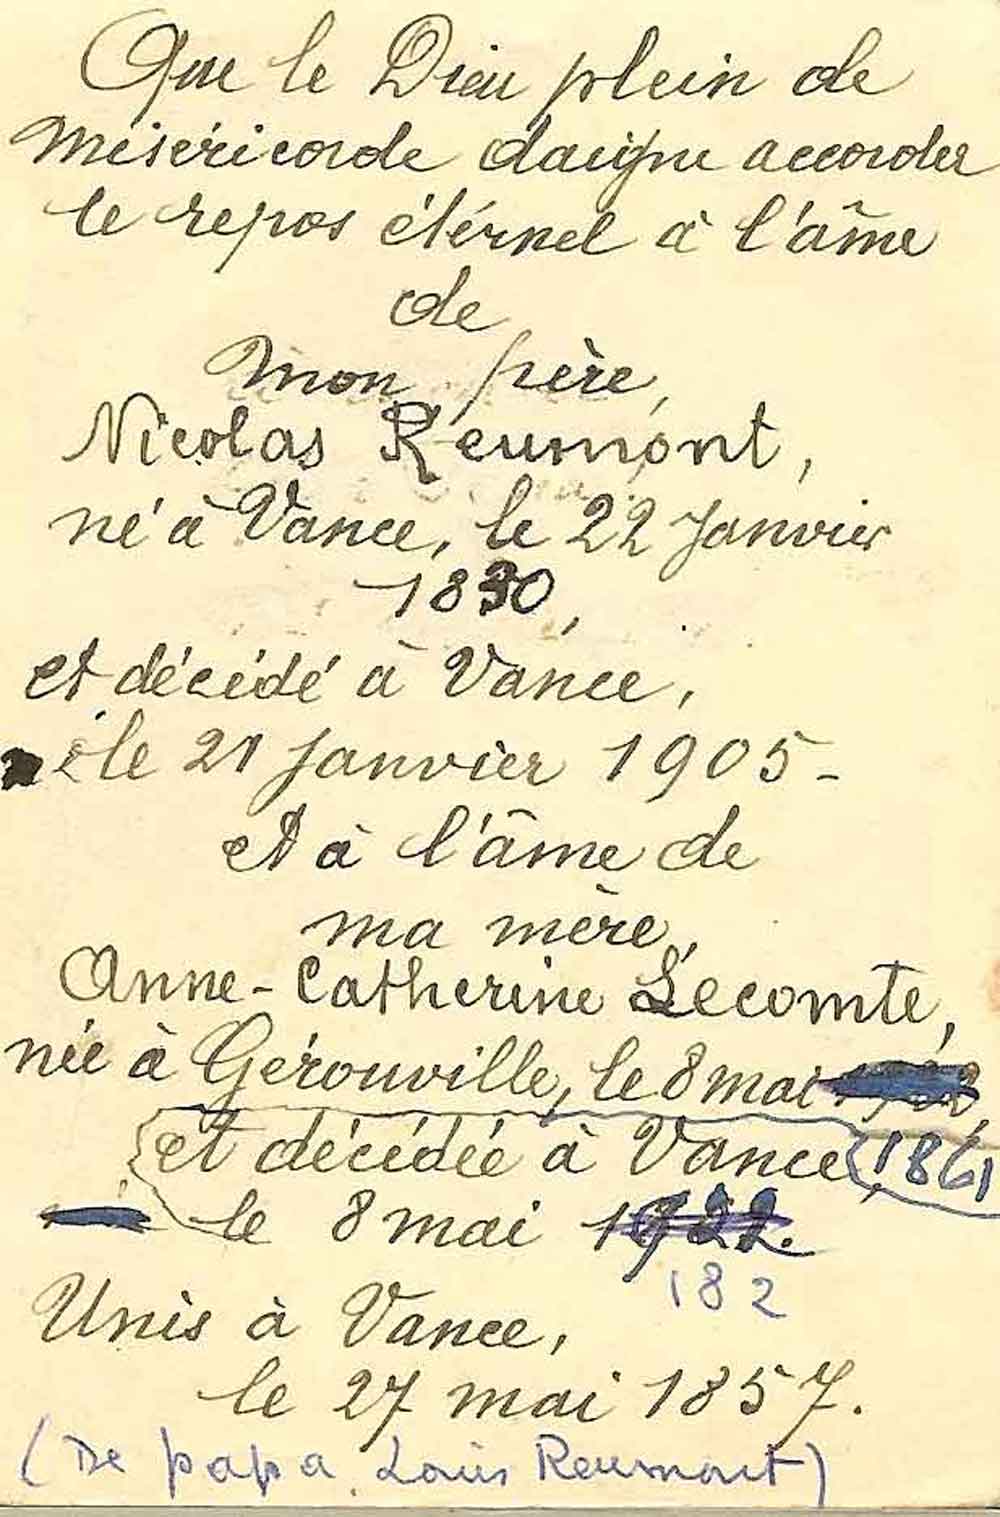 Que le Dieu plein de
miséricorde daigne accorder
le repos étérnel à l'âme
de
mon père,
Nicolas Reumont,
né à Vance, le 22 Janvier
1830,
et décédé à Vance,
le 21 Janvier 1905-
et à l'âme de
ma mère,
Anne-Catherine Lecomte,
née à Gérouville, le 8 mai
et décédée à Vance, 1861
le 8 mai 1922.
182
Unis à Vance,
le 27 mai 1857.
(De papa Louis Reumont)